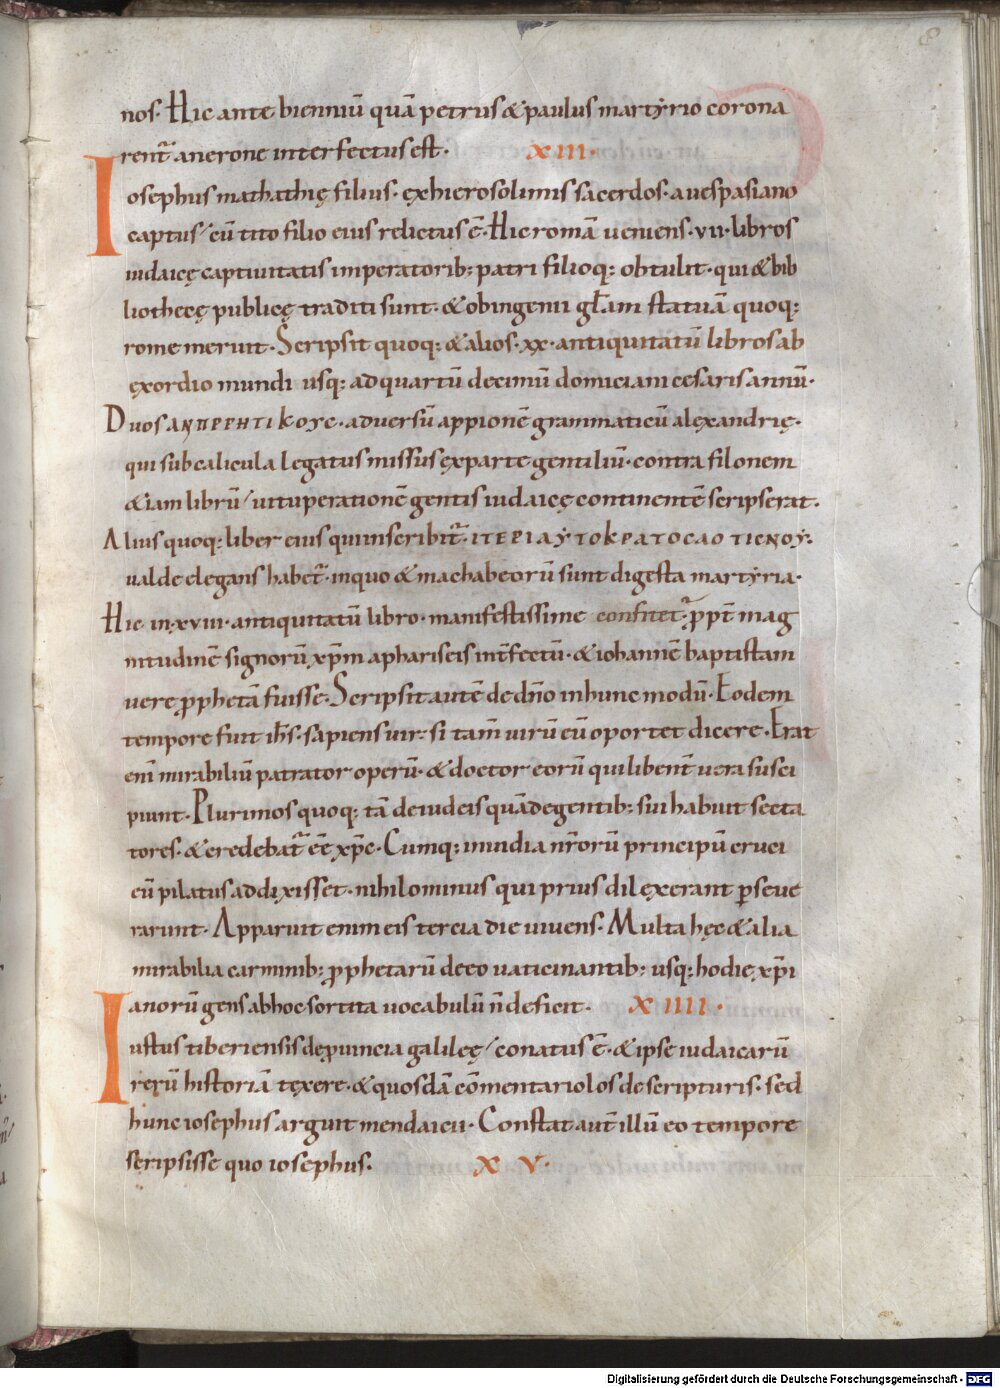 8
nos. Hic ante bienniū quā petrus & paulus martyrio corona
rent̄ a nerone interfectus est. XIII.
Iosephus mathathię filius. ex hierosolimis sacerdos. a uespasiano
captus / cū tito filio eius relictus ē. Hic romā ueniens. VII. libros
iudaicę captiuitatis imperatorib; patri filioq; obtulit. qui & bib
liothecę publicę traditi sunt. & ob ingenii gl̄am statuā quoq;
rome meruit. Scripsit quoq; & alios. xx. antiquitatū libros ab
ęxordio mundi usq; ad quartū decimū domiciani cesaris annū.
Duos ΑΝΠΡΡΗΤΙΚΟΥС. aduersū appionē grammaticū alęxandrię.
qui sub calicula legatus missus ęx parte gentiliū. contra filonem
&iam librū / uituperationē gentis iudaicę continentē scripserat.
Alius quoq; liber eius qui inscribit̄. ΙΤΕΡΙΑΥΤΟΚΡΑΤΟСΛΟΤΙСΝΟΥ.
ualde elegans habet̄. in quo & machabeorū sunt digesta martyria.
Hic in. xviii. antiquitatū libro. manifestissime confitet̄. ꝓpt̄ mag
nitudinē signorū. xp̄m a phariseis int̄fectū. & iohannē baptistam
uere ꝓphetā fuisse. Scripsit autē de dn̄o in hunc modū. Eodem
tempore fuit ih̄s. sapiens uir. si tam̄ uirū eū oportet dicere. Erat
eni mirabiliū patrator operū. & doctor eorū qui libent̄ uera susci
piunt. Plurimos quoq; tā de iudeis quā de gentib; sui habuit secta
tores. & credebat̄ eē xp̄c. Cumq; inuidia nr̄orū principū cruci
eū pilatus addixisset. nihilominus qui prius dilęxerant ꝑseue
rarunt. Apparuit enim eis tercia die uiuens. Multa hęc & alia
mirabilia carminib; ꝓphetarū de eo uaticinantib; usq; hodie xp̄i
anorū gens ab hoc sortita uocabulū n̄ deficit. XIIII.
Iustus tiberiensis de ꝓuincia galileę / conatus ē. & ipse iudaicarū
rerū historiā tęxere. & quosdā cōmentariolos de scripturis. sed
hunc iosephus arguit mendacii. Constat aut̄ illū eo tempore
scripsisse quo iosephus. XV.
Digitalisierung gefördert durch die Deutsche Forschungsgemeinschaft - DFG